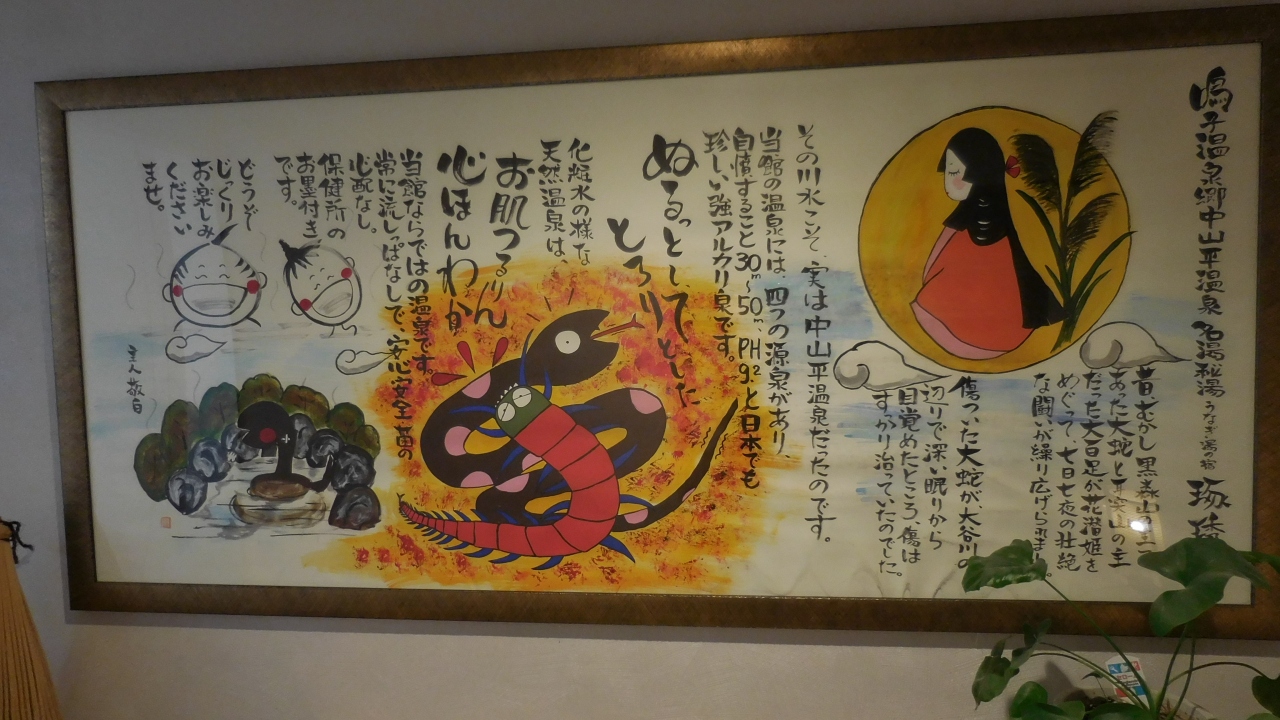 鳴子温泉郷中山平温泉 名湯秘湯 うなぎ湯の宿 琢琇
昔むかし黒森山の主で
あった大蛇と
だった大百足が花渕姫を
めぐって、七日七夜の壮絶
な闘いが繰り広げられました。
傷ついた大蛇が、大谷川の
辺りで深い眠りから
目覚めたところ、傷は
すっかり治っていたのでした。
その川水こそ、実は中山平温泉だったのです。
当館の温泉には、四つの源泉があり、
自慢すること30m〜50m、PH9.2と日本でも
珍しい強アルカリ泉です。
ぬるっとしてとした
とろり
化粧水の様な
天然温泉は、
お肌つるりん
心ほんわか
当館ならではの温泉です。
常に流しっぱなしで、安心安全 菌の
心配なし。
保健所の
お墨付き
です。
どうぞ
じっくり
お楽しみ
ください
ませ。
主人 敬白